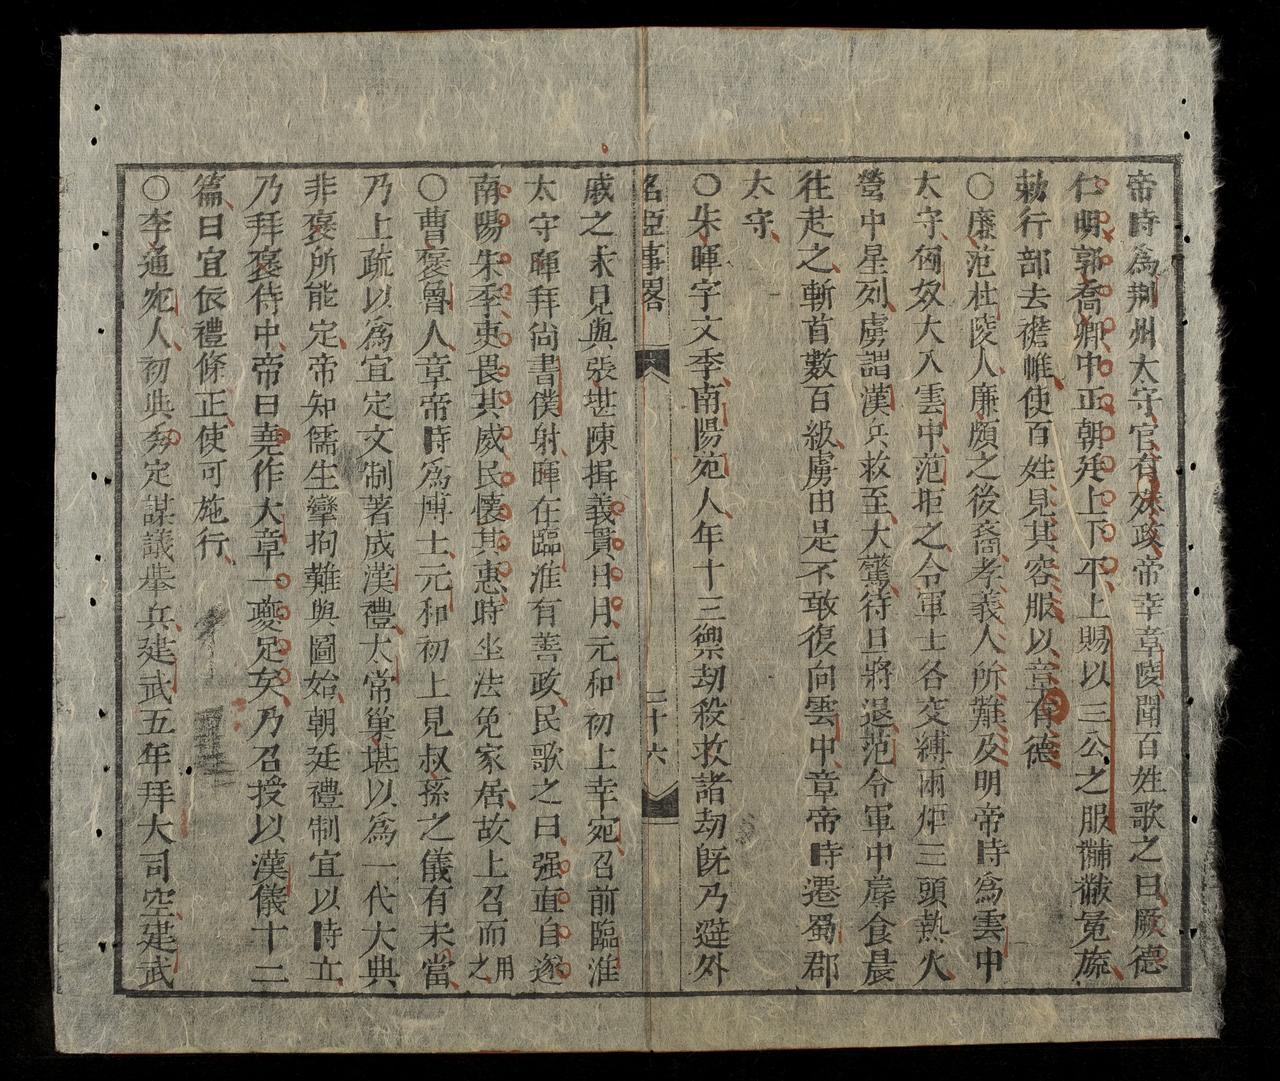 帝時爲荆州太守官有殊政帝幸章陵聞百姓歌之曰厥德
仁明郭喬卿中正朝廷上下平上賜以三公之服黼黻冕旒
勅行部去襜帷使百姓見其容服以章有德
○廉范杜陵人廉頗之後裔孝義人所難及明帝時爲雲中
太守匈奴大入雲中范拒之令軍士各交縛兩炬三頭熱火
營中星列虜謂漢兵救至大驚待旦將退范令軍中蓐食晨
往赴之斬首數百級虜由是不敢復向雲中章帝時遷蜀郡
太守
○朱暉字文季南陽宛人年十三禦劫殺救諸劫旣乃遊外
名臣事畧 二十六
戚之未見與張堪陳揖義貫日月元和初上幸宛召前臨淮
太守暉拜尚書僕射暉在臨淮有善政民歌之曰强直自遂
南陽朱季吏畏其威民懷其惠時坐法免家居故上召而用之
○曹褒魯人章帝時爲博士元和初上見叔孫之儀有未當
乃上疏以爲宜定文制著成漢禮太常巢堪以爲一代大典
非褒所能定帝知儒生攣拘難與圖始朝廷禮制宜以時立
乃拜褒侍中帝曰堯作大章一夔足矣乃召授以漢儀十二
篇曰宜依禮條正使可施行
○李通宛人初與秀定謀議舉兵建武五年拜大司空建武